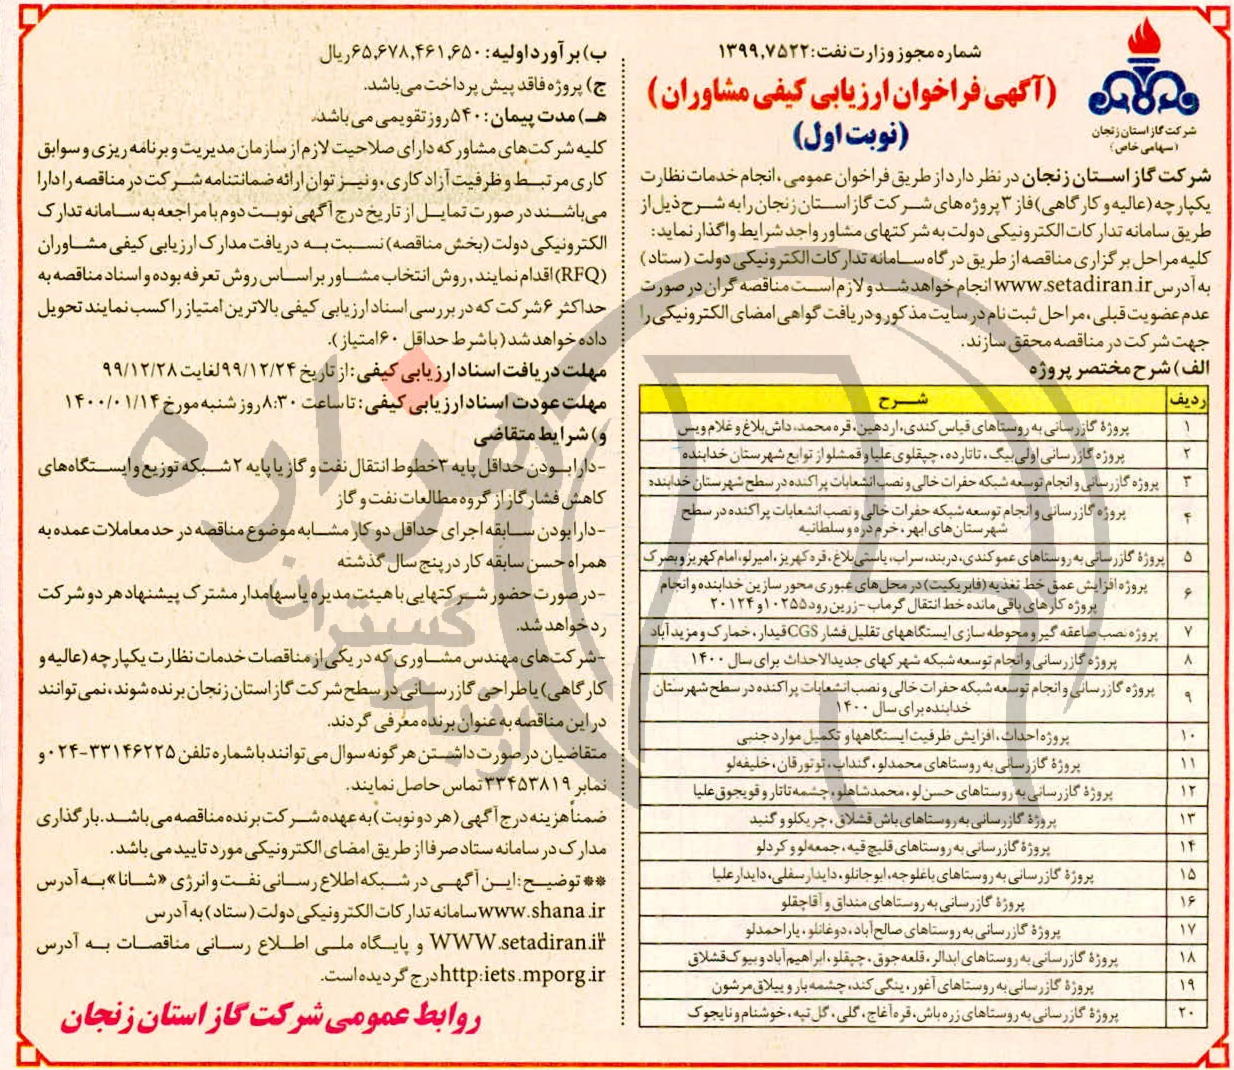 شرکت گاز استان زنجان
(سهامی خاص)
شماره مجوز وزارت نفت: ۱۳۹۹,۷۵۲۲
(آگهی فراخوان ارزیابی کیفی مشاوران)
(نوبت اول)
شرکت گاز استان زنجان در نظر دارد از طریق فراخوان عمومی، انجام خدمات نظارت
یکپارچه (عالیه و کارگاهی) فاز ۳ پروژه‌های شرکت گاز استان زنجان را به شرح ذیل از
طریق سامانه تدارکات الکترونیکی دولت به شرکتهای مشاور واجد شرایط واگذار نماید:
کلیه مراحل برگزاری مناقصه از طریق درگاه سامانه تدارکات الکترونیکی دولت (ستاد)
به آدرس www.setadiran.ir انجام خواهد شد و لازم است مناقصه گران در صورت
عدم عضویت قبلی، مراحل ثبت نام در سایت مذکور و دریافت گواهی امضای الکترونیکی را
جهت شرکت در مناقصه محقق سازند.
الف) شرح مختصر پروژه
ردیف شرح
۱ پروژهٔ گازرسانی به روستاهای قیاس کندی، اردهین، قره محمد، داش بلاغ و غلام ویس
۲ پروژه گازرسانی اولی بیگ، تاتارده، چپقلوی علیا و قمشلو از توابع شهرستان خدابنده
۳ پروژه گازرسانی و انجام توسعه شبکه حفرات خالی و نصب انشعابات پراکنده در سطح شهرستان خدابنده
۴ پروژه گازرسانی و انجام توسعه شبکه حفرات خالی و نصب انشعابات پراکنده در سطح
شهرستان‌های ابهر، خرم دره و سلطانیه
۵ پروژهٔ گازرسانی به روستاهای عموکندی، دربند، سراب، یاستی بلاغ، قره کهریز، امیرلو، امام کهریز و بصرک
۶ پروژه افزایش عمق خط تغذیه (فابریکیت) در محل‌های عبوری محور سازین خدابنده و انجام
پروژه کارهای باقی مانده خط انتقال گرماب - زرین رود ۱۰۲۵۵ و ۲۰۱۲۴
۷ پروژه نصب صاعقه گیر و محوطه سازی ایستگاههای تقلیل فشار CGS قیدار، خمارک و مزیدآباد
۸ پروژه گازرسانی و انجام توسعه شبکه شهرکهای جدیدالاحداث برای سال ۱۴۰۰
۹ پروژه گازرسانی و انجام توسعه شبکه حفرات خالی و نصب انشعابات پراکنده در سطح شهرستان
خدابنده برای سال ۱۴۰۰
۱۰ پروژه احداث، افزایش ظرفیت ایستگاهها و تکمیل موارد جنبی
۱۱ پروژهٔ گازرسانی به روستاهای محمدلو، گنداب، توتورقان، خلیفه‌لو
۱۲ پروژهٔ گازرسانی به روستاهای حسن لو، محمدشاهلو، چشمه تاتار و قویجوق علیا
۱۳ پروژهٔ گازرسانی به روستاهای باش قشلاق، چریکلو و گنبد
۱۴ پروژهٔ گازرسانی به روستاهای قلیچ قیه، جمعه‌لو و کردلو
۱۵ پروژهٔ گازرسانی به روستاهای باغلوجه، ابوجانلو، دایدار سفلی، دایدار علیا
۱۶ پروژهٔ گازرسانی به روستاهای منداق و آقاچقلو
۱۷ پروژهٔ گازرسانی به روستاهای صالح آباد، دوغانلو، یاراحمدلو
۱۸ پروژهٔ گازرسانی به روستاهای ابدالر، قلعه جوق، چپقلو، ابراهیم آباد و بیوک قشلاق
۱۹ پروژهٔ گازرسانی به روستاهای آغور، ینگی کند، چشمه بار و ییلاق مرشون
۲۰ پروژهٔ گازرسانی به روستاهای زره باش، قره آغاج، گلی، گل تپه، خوشنام و نایجوک
ب) برآورد اولیه: ۶۵,۶۷۸,۴۶۱,۶۵۰ ریال
ج) پروژه فاقد پیش پرداخت می‌باشد.
هـ) مدت پیمان: ۵۴۰ روز تقویمی می باشد.
کلیه شرکت‌های مشاور که دارای صلاحیت لازم از سازمان مدیریت و برنامه ریزی و سوابق
کاری مرتبط و ظرفیت آزاد کاری، و نیز توان ارائه ضمانتنامه شرکت در مناقصه را دارا
می‌باشند در صورت تمایل از تاریخ درج آگهی نوبت دوم با مراجعه به سامانه تدارک
الکترونیکی دولت (بخش مناقصه) نسبت به دریافت مدارک ارزیابی کیفی مشاوران
(RFQ) اقدام نمایند, روش انتخاب مشاور براساس روش تعرفه بوده و اسناد مناقصه به
حداکثر ۶ شرکت که در بررسی اسناد ارزیابی کیفی بالاترین امتیاز را کسب نمایند تحویل
داده خواهد شد (با شرط حداقل ۶۰ امتیاز).
مهلت دریافت اسناد ارزیابی کیفی: از تاریخ ۹۹/۱۲/۲۴ لغایت ۹۹/۱۲/۲۸
مهلت عودت اسناد ارزیابی کیفی: تا ساعت ۸:۳۰ روز شنبه مورخ ۱۴۰۰/۰۱/۱۴
و) شرایط متقاضی
-دارا بودن حداقل پایه ۳ خطوط انتقال نفت و گاز یا پایه ۲ شبکه توزیع و ایستگاه‌های
کاهش فشار گاز از گروه مطالعات نفت و گاز
-دارا بودن سابقه اجرای حداقل دو کار مشابه موضوع مناقصه در حد معاملات عمده به
همراه حسن سابقه کار در پنج سال گذشته
-در صورت حضور شرکتهایی با هیئت مدیره یا سهامدار مشترک پیشنهاد هر دو شرکت
رد خواهد شد.
-شرکت‌های مهندس مشاوری که در یکی از مناقصات خدمات نظارت یکپارچه (عالیه و
کارگاهی) یا طراحی گازرسانی در سطح شرکت گاز استان زنجان برنده شوند، نمی توانند
در این مناقصه به عنوان برنده معرفی گردند.
متقاضیان در صورت داشتن هر گونه سوال می توانند با شماره تلفن ۳۳۱۴۶۲۲۵-۰۲۴ و
نمابر ۳۳۴۵۳۸۱۹ تماس حاصل نمایند.
ضمناً هزینه درج آگهی (هر دو نوبت) به عهده شرکت برنده مناقصه می باشد. بارگذاری
مدارک در سامانه ستاد صرفا از طریق امضای الکترونیکی مورد تایید می باشد.
** توضیح: این آگهی در شبکه اطلاع رسانی نفت و انرژی «شانا» به آدرس
www.shana.ir سامانه تدارکات الکترونیکی دولت (ستاد) به آدرس
WWW.setadiran.ir و پایگاه ملی اطلاع رسانی مناقصات به آدرس
http:iets.mporg.ir درج گردیده است.
روابط عمومی شرکت گاز استان زنجان